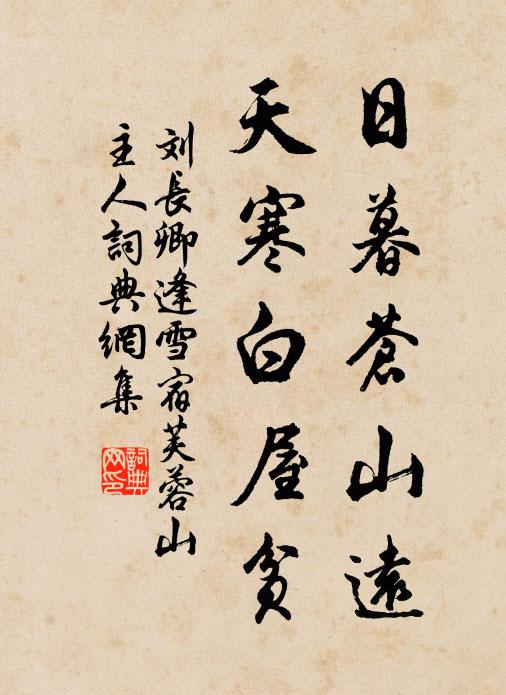 日暮蒼山遠
天寒白屋貧
刘長卿逢雪宿芙蓉山
主人詞典網集
詞典网印